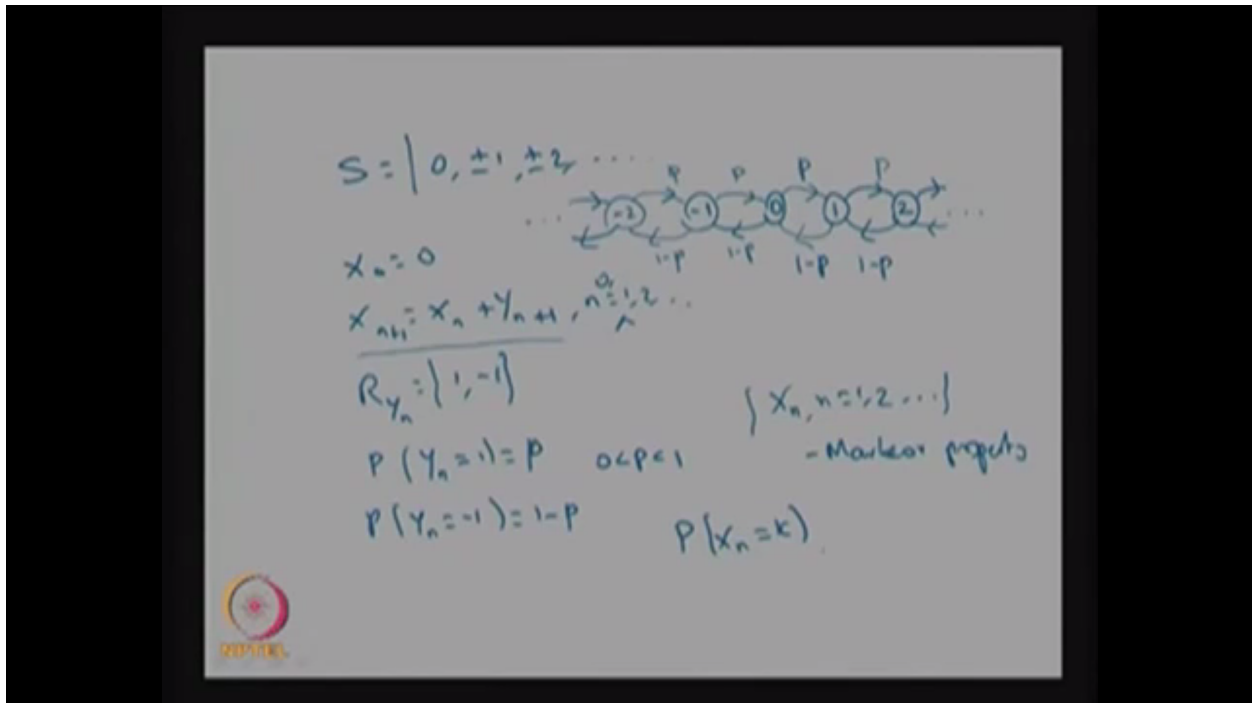 S = { 0, ±1, ±2, ...
p p p p
... -2 -1 0 1 2 ...
1-p 1-p 1-p 1-p
X₀ = 0
Xₙ₊₁ = Xₙ + Yₙ₊₁, n = 0, 1, 2 ...
R_Yₙ = {1, -1}
{ Xₙ, n = 1, 2 ... }
P(Yₙ = 1) = p 0 < p < 1
- Markov property
P(Yₙ = -1) = 1-p
P(Xₙ = k)
NPTEL